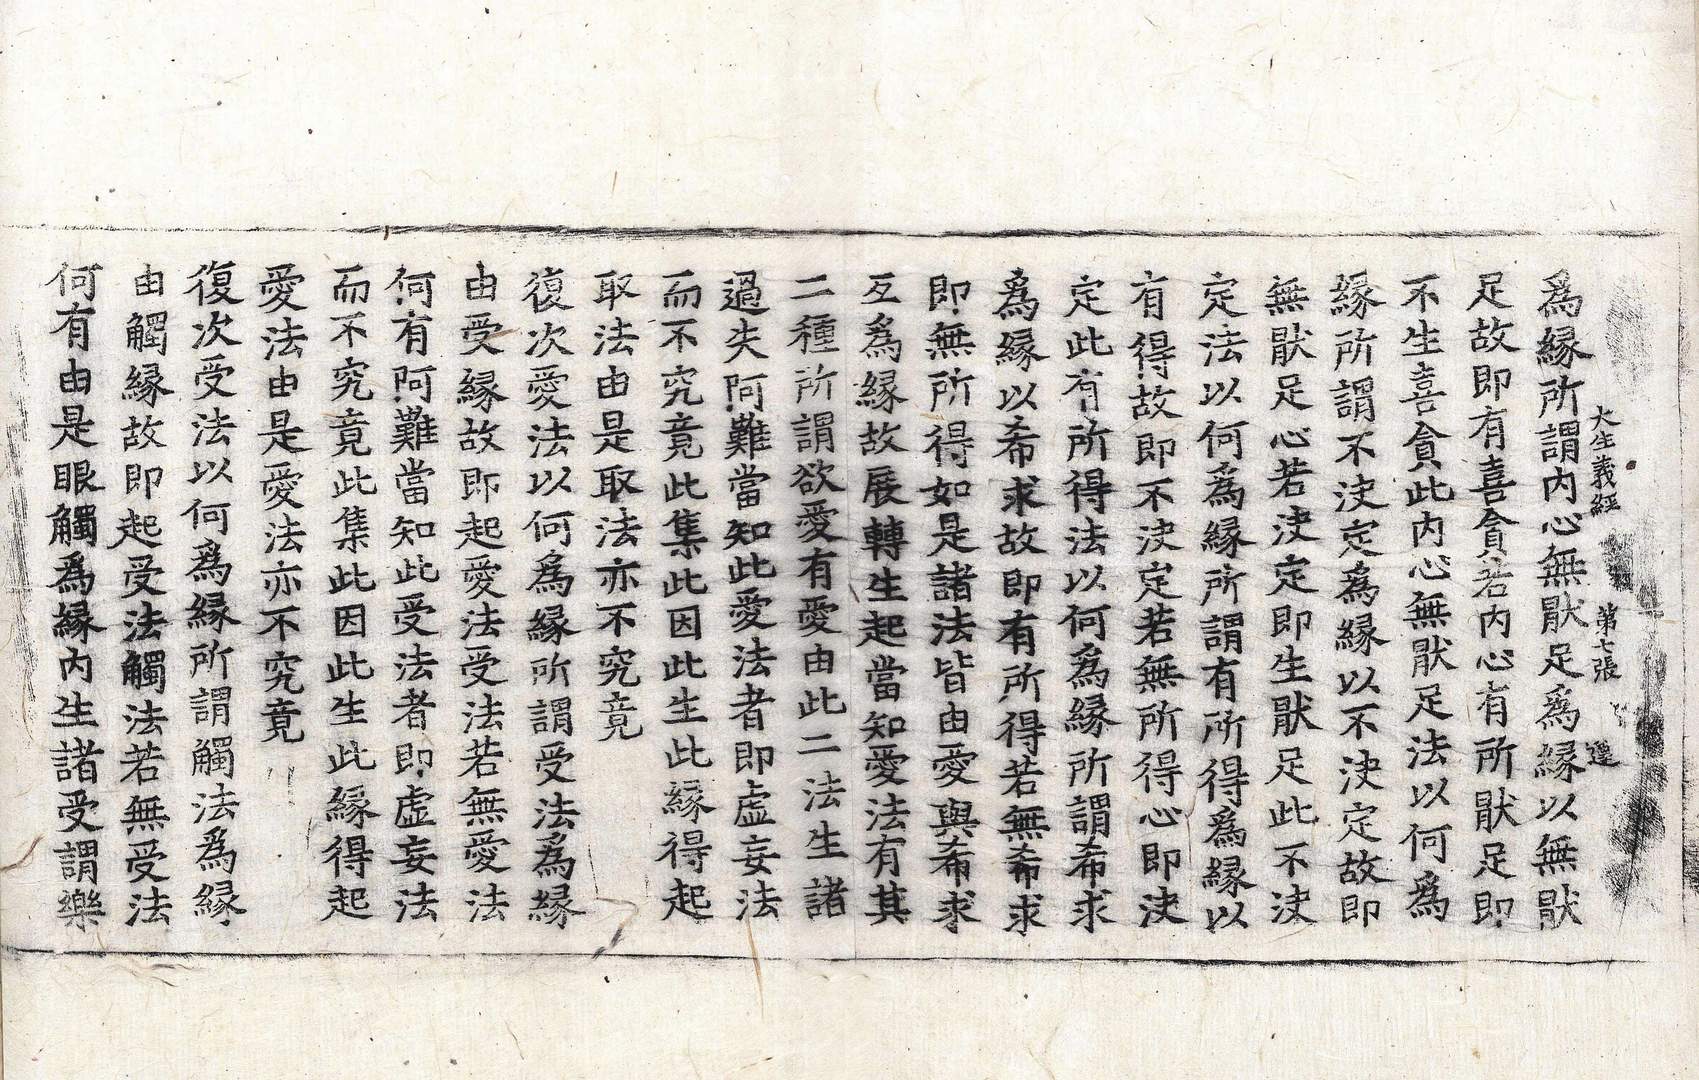 大生義經 第七張 遵
爲縁所謂内心無猒足爲縁以無猒
足故即有喜貪若内心有所猒足即
不生喜貪此内心無猒足法以何爲
縁所謂不决定爲縁以不决定故即
無猒足心若决定即生猒足此不决
定法以何爲縁所謂有所得爲縁以
有得故即不决定若無所得心即决
定此有所得法以何爲縁所謂希求
爲縁以希求故即有所得若無希求
即無所得如是諸法皆由愛與希求
互爲縁故展轉生起當知愛法有其
二種所謂欲愛有愛由此二法生諸
過失阿難當知此愛法者即虚妄法
而不究竟此集此因此生此縁得起
取法由是取法亦不究竟
復次愛法以何爲縁所謂受法爲縁
由受縁故即起愛法受法若無愛法
何有阿難當知此受法者即虚妄法
而不究竟此集此因此生此縁得起
愛法由是愛法亦不究竟
復次受法以何爲縁所謂觸法爲縁
由觸縁故即起受法觸法若無受法
何有由是眼觸爲縁内生諸受謂樂